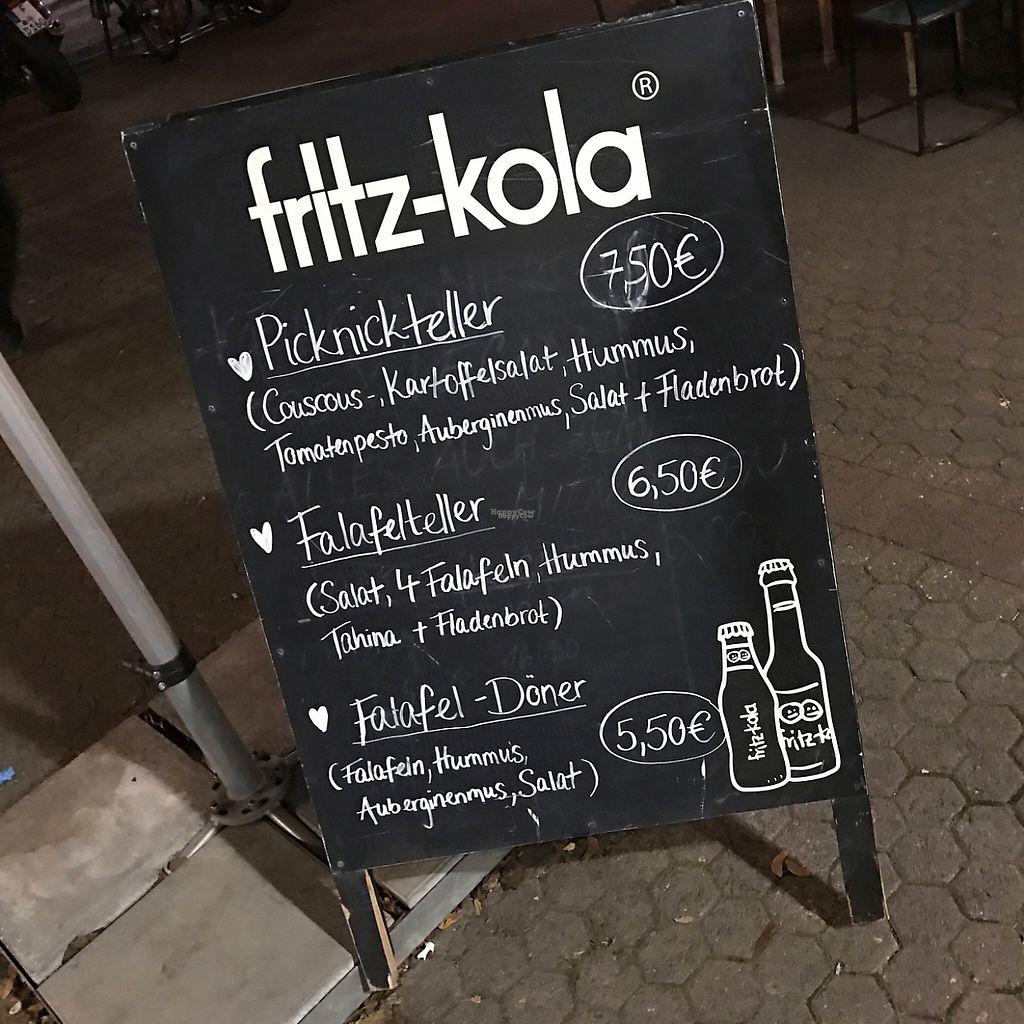 fritz-kola ®
7,50€
Picknickteller
(Couscous-, Kartoffelsalat, Hummus,
Tomatenpesto, Auberginenmus, Salat + Fladenbrot)
6,50€
Falafelteller
HappyCow
HappyCow
(Salat, 4 Falafeln, Hummus,
Tahina + Fladenbrot)
Falafel-Döner
5,50€
(Falafeln, Hummus,
Auberginenmus, Salat)
fritz-kola
fritz-k